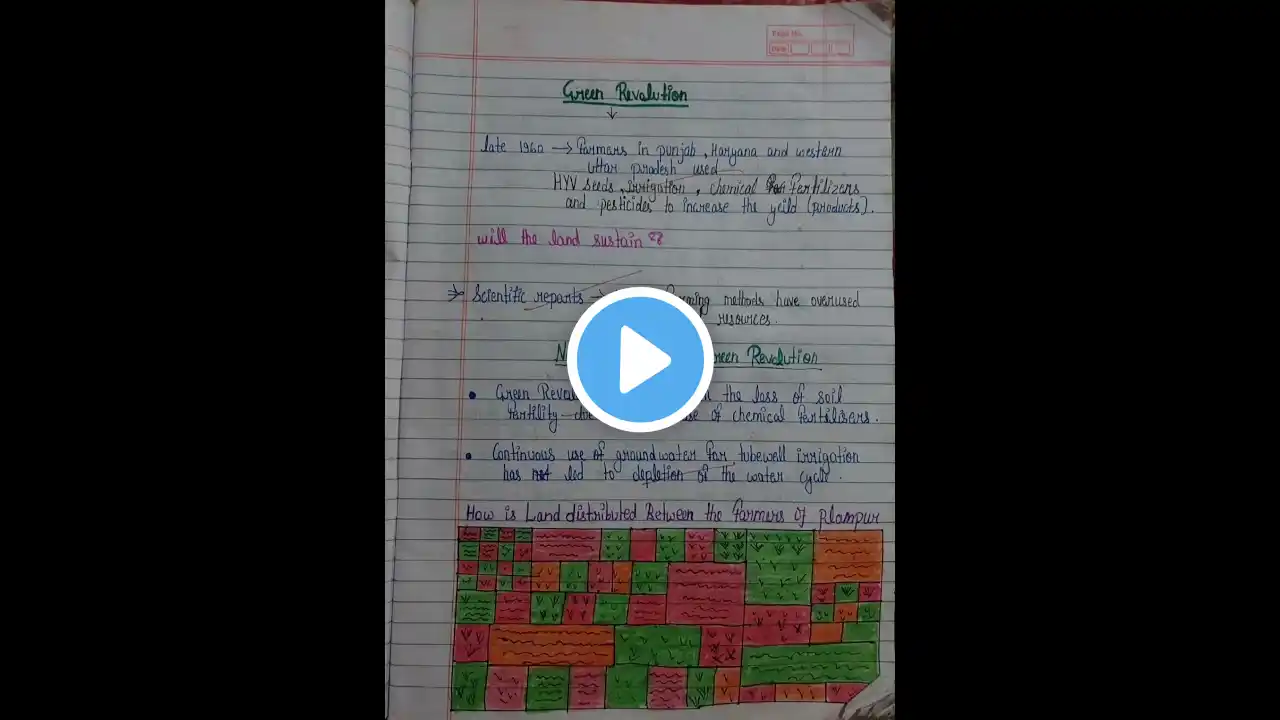 Page No.
Date
Green Revalution
late 1960 → Farmers in punjab, Haryana and western
Uttar pradesh used
HYV seeds, irrigation, chemical Fertilizers
and pesticides to increase the yeild (products).
will the land sustain ??
→ Scientific reports → farming methods have overused
resources.
Green Revalution
• Green the loss of soil
fertility of chemical fertilisers.
• Continuous use of groundwater for tubewell irrigation
has led to depletion of the water cycle.
How is Land distributed Between the Farmers of plampur